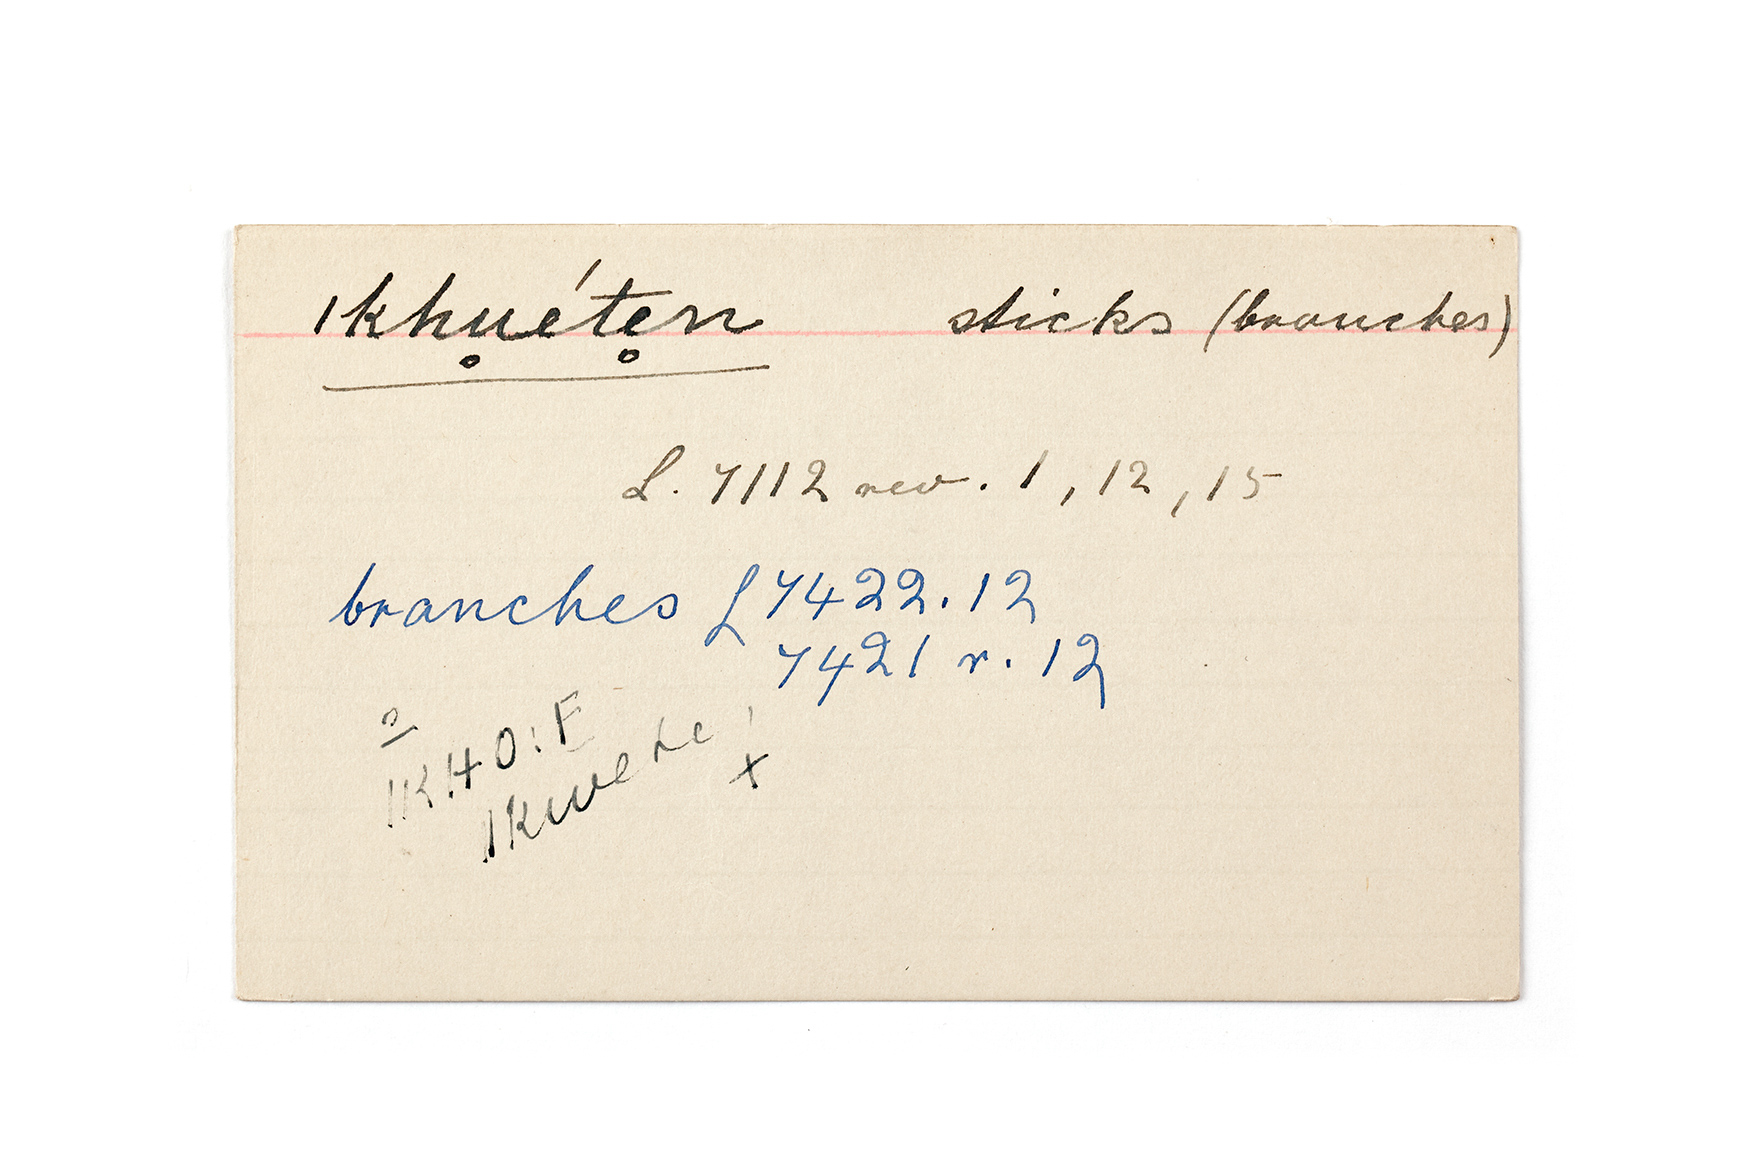 ǀkhu̥é́te̥n sticks (branches)
L. 7112 rev. 1, 12, 15
branches L 7422. 12
7421 r. 12
?
ǀKHO:E